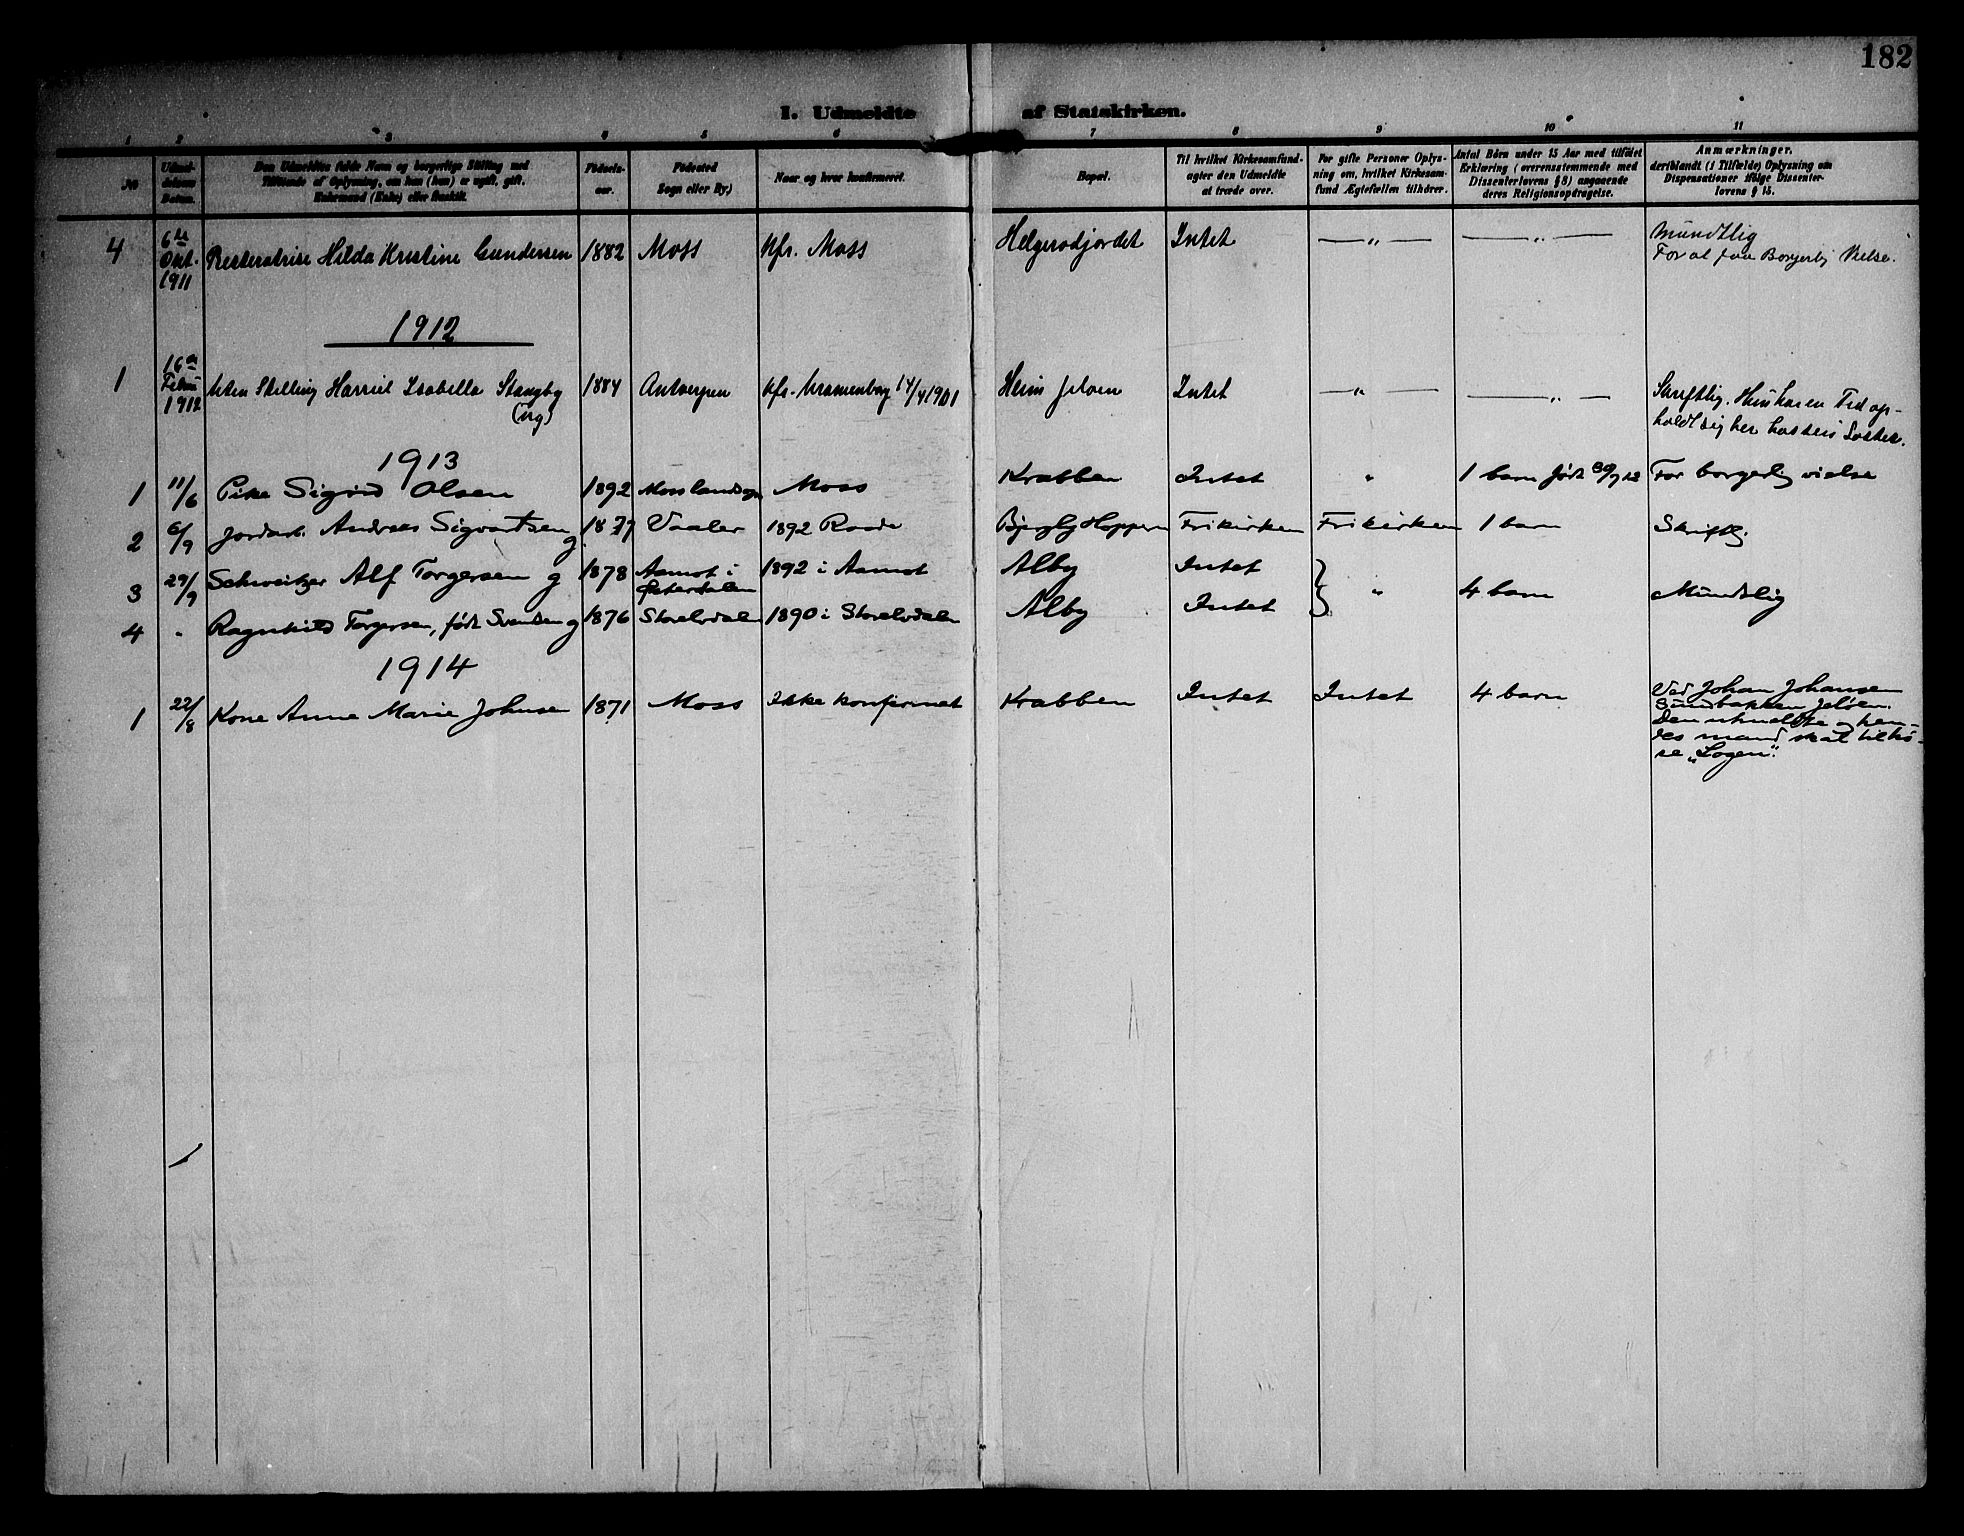 182
I. Udmeldte af Statskirken.
1 2 3 4 5 6 7 8 9 10 11
№
Udmeldelsens Datum.
Den Udmeldtes fulde Navn og borgerlige Stilling med
Tilföiende af Oplysning, om han (hun) er ugift, gift,
Enkemand (Enke) eller fraskilt.
Födsels-
aar.
Födested
Sogn eller By)
Naar og hvor konfirmeret.
Bopæl.
Til hvilket Kirkesamfund-
agter den Udmeldte
at træde over.
For gifte Personer Oplys-
ning om, hvilket Kirkesam-
fund Ægtefællen tilhörer.
Antal Börn under 15 Aar med tilföiet
Erklæring (overensstemmende med
Dissenterlovens § 8) angaaende
deres Religionsopdragelse.
Anmærkninger.
deriblandt (i Tilfælde) Oplysning om
Dispensationer ifölge Dissenter-
lovens § 15.
4 6te Okt. 1911 Hilda Kristine Gundersen 1882 Moss Kfr. Moss Helgerødjordet Intet — „ — — „ — Mundtlig
For at faa Borgerlig Vielse.
1912
1 16de Febru 1912 uden Stilling Harriet Isabella Stangby 1884 Antverpen Kfr. 14/4 1901 Heim Jeløen Intet — „ — — „ — Skriftlig. Hun har en Tid op-
(ug) holdt sig her hos sin Søster.
1913
1 11/6 Pike Sigrid Olsen 1892 Moss landsogn Moss Krabben Intet „ 1 barn født 30/7 12 For borgerlig vielse
2 6/9 Jordarb. Andreas Sigvartsen g. 1877 Vaaler 1892 Raade Frikirken Frikirken 1 barn Skriftlig.
3 29/9 Schweitzer Alf Torgersen g 1878 Aamot i Østerdalen 1892 i Aamot Alby Intet } „ 4 barn Mundtlig
4 „ Ragnhild Torgersen, født Svendsen g 1876 Storelvdalen 1890 i Storelvdalen Alby Intet
1914
1 22/8 Kone Anne Marie Johnsen 1871 Moss Ikke konfirmert Krabben Intet Intet 4 barn Ved Johan Johansen
Sundbakken Jeløen.
Den utmeldte og hen-
des mand skal tilhø-
re „Logen".